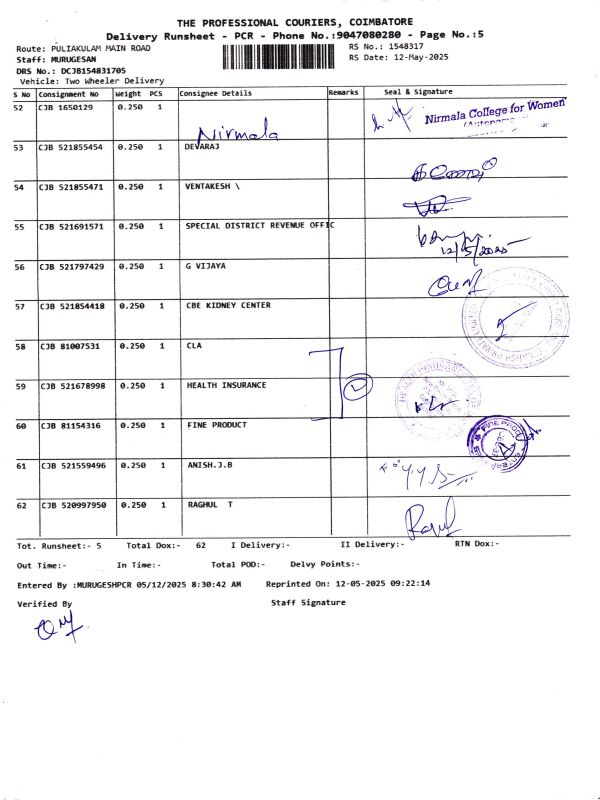 THE PROFESSIONAL COURIERS, COIMBATORE
Delivery Runsheet - PCR - Phone No.:9047080280 - Page No.:5
Route: PULIAKULAM MAIN ROAD RS No.: 1548317
Staff: MURUGESAN RS Date: 12-May-2025
DRS No.: DCJB154831705
Vehicle: Two Wheeler Delivery
S No Consignment No Weight PCS Consignee Details Remarks Seal & Signature
52 CJB 1650129 0.250 1 Nirmala Nirmala College for Women
53 CJB 521855454 0.250 1 DEVARAJ
54 CJB 521855471 0.250 1 VENTAKESH \
55 CJB 521691571 0.250 1 SPECIAL DISTRICT REVENUE OFFIC 12/5/2025
56 CJB 521797429 0.250 1 G VIJAYA
57 CJB 521854418 0.250 1 CBE KIDNEY CENTER
58 CJB 81007531 0.250 1 CLA
59 CJB 521678998 0.250 1 HEALTH INSURANCE
60 CJB 81154316 0.250 1 FINE PRODUCT
61 CJB 521559496 0.250 1 ANISH.J.B
62 CJB 520997950 0.250 1 RAGHUL T
Tot. Runsheet:- 5 Total Dox:- 62 I Delivery:- II Delivery:- RTN Dox:-
Out Time:- In Time:- Total POD:- Delvy Points:-
Entered By :MURUGESHPCR 05/12/2025 8:30:42 AM Reprinted On: 12-05-2025 09:22:14
Verified By Staff Signature